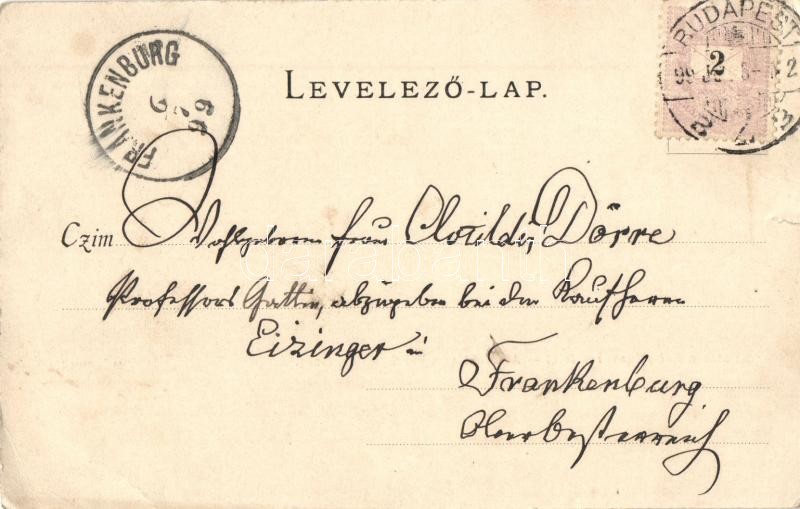 BUDAPEST
2
FRANKENBURG
99
LEVELEZŐ-LAP.
Czim Wohlgeboren Frau Clotilde Dörre
Professors Gattin, abzugeben bei den Kaufherrn
Eizinger in
Frankenburg
Oberösterreich